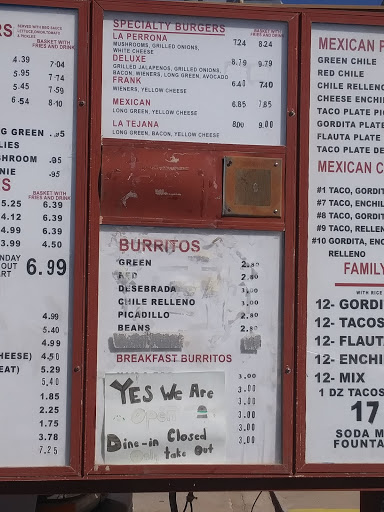 RS
SERVED WITH BBQ SAUCE
LETTUCE, ONION, TOMATO
& PICKLES
BASKET WITH
FRIES AND DRINK
4.39 7.04
5.95 7.74
4.95 7.45
5.65
6.54 8.10
NG GREEN .95
LIES
SHROOM .95
NIE .95
S
BASKET WITH
FRIES AND DRINK
5.25 6.39
4.99 6.39
3.99 4.99
4.99 4.50
NDAY
OUT
RT 6.99
4.99
5.40
4.99
CHEESE) 4.50
EAT) 5.29
5.40
1.85
2.25
1.75
3.78
7.25
SPECIALTY BURGERS
BASKET WITH
FRIES AND DRINK
LA PERRONA 7.24 8.24
MUSHROOMS, GRILLED ONIONS,
WHITE CHEESE
DELUXE 8.79 9.79
GRILLED JALAPENOS, GRILLED ONIONS,
BACON, WIENERS, LONG GREEN, AVOCADO
FRANK 6.40 7.40
WIENERS, YELLOW CHEESE
MEXICAN 6.85 7.85
LONG GREEN, YELLOW CHEESE
LA TEJANA 8.00 9.00
LONG GREEN, BACON, YELLOW CHEESE
BURRITOS
GREEN 2.80
RED 2.80
DESEBRADA 3.00
CHILE RELLENO 3.00
PICADILLO 2.80
BEANS 2.80
BREAKFAST BURRITOS
3.00
3.00
3.00
3.00
3.00
YES We Are
Open
Dine-in Closed
Only take Out
MEXICAN P
GREEN CHILE
RED CHILE
CHILE RELLENO
CHEESE ENCHIL
TACO PLATE PIC
GORDITA PLATE
FLAUTA PLATE
TACO PLATE DE
MEXICAN C
#1 TACO, GORDIT
#7 TACO, ENCHIL
#8 TACO, GORDIT
#9 TACO, RELLEN
#10 GORDITA, ENC
RELLENO
FAMILY
WITH RICE
12- GORDI
12- TACOS
12- FLAUT
12- ENCHI
12- MIX
1 DZ TACOS
17
SODA M
FOUNTA